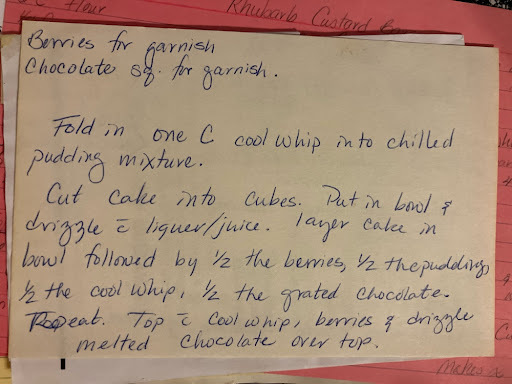 Flour
Rhubarb Custard
Berries for garnish
Chocolate sq. for garnish.
Fold in one C cool whip into chilled
pudding mixture.
Cut cake into cubes. Put in bowl &
drizzle c̄ liquer/juice. layer cake in
bowl followed by 1/2 the berries, 1/2 the pudding,
1/2 the cool whip, 1/2 the grated chocolate.
Repeat. Top c̄ cool whip, berries & drizzle
melted chocolate over top.
Makes